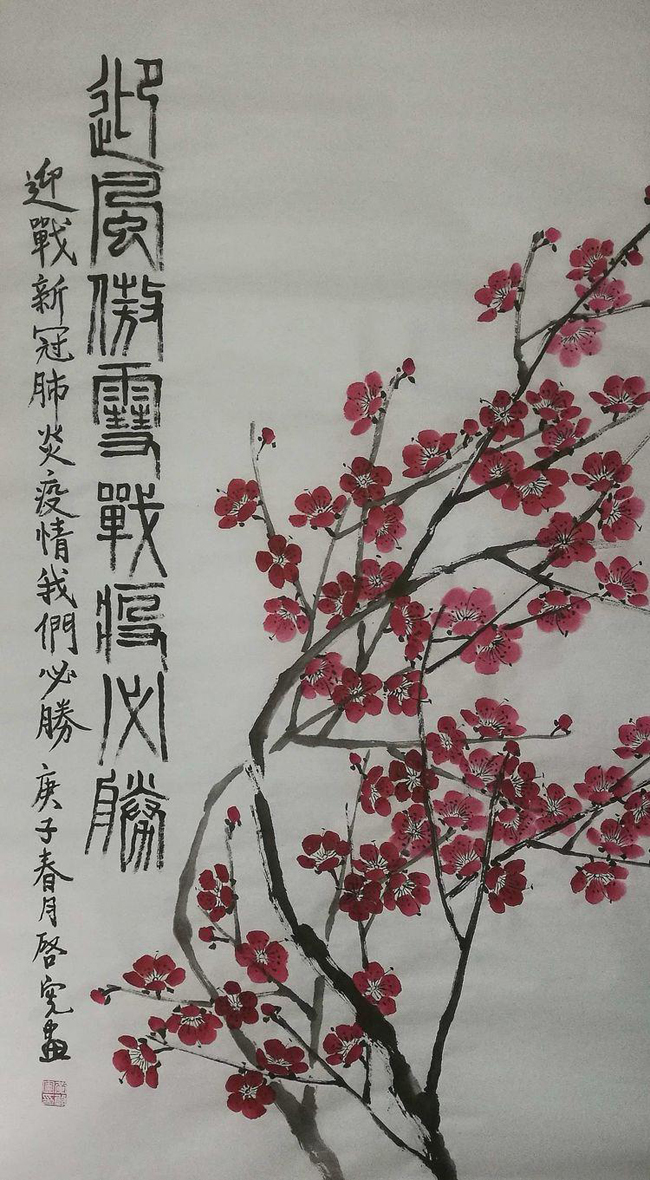 迎風傲雪戰疫必勝
迎戰新冠肺炎疫情我們必勝 庚子春月啓完畫